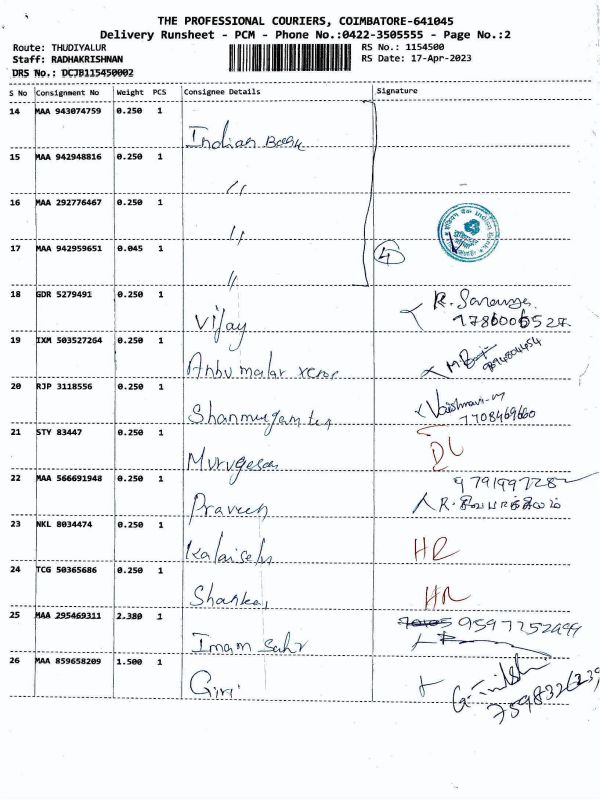 THE PROFESSIONAL COURIERS, COIMBATORE-641045
Delivery Runsheet - PCM - Phone No.:0422-3505555 - Page No.:2
Route: THUDIYALUR RS No.: 1154500
Staff: RADHAKRISHNAN RS Date: 17-Apr-2023
DRS No.: DCJB115450002
S No Consignment No Weight PCS Consignee Details Signature
14 MAA 943074759 0.250 1
Indian Bank
15 MAA 942948816 0.250 1
"
16 MAA 292776467 0.250 1
"
17 MAA 942959651 0.045 1 4
"
18 GDR 5279491 0.250 1
Vijay
19 IXM 503527264 0.250 1
Anbu malar xerox
20 RJP 3118556 0.250 1
Vaishnavi-M
7708469660
21 STY 83447 0.250 1
Murugesan DL
22 MAA 566691948 0.250 1
Praveen
23 NKL 8034474 0.250 1
HR
24 TCG 50365686 0.250 1
HR
25 MAA 295469311 2.380 1
Imam
26 MAA 859658209 1.500 1
Giri